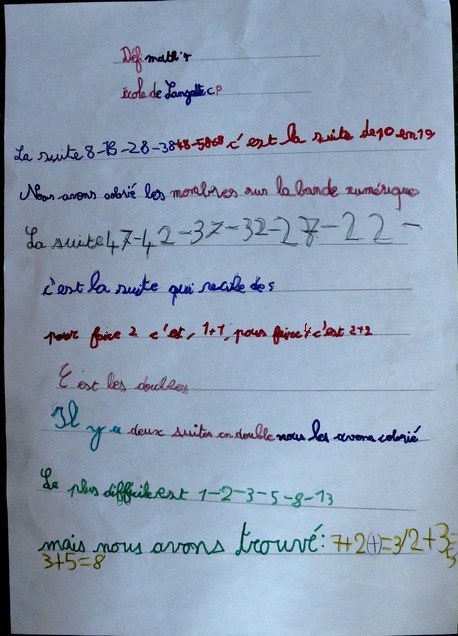 Défi math
école de Langatte CP
La suite 8-18-28-3848-5868 c'est la suite de 10 en 10
Nous avons colorié les nombres sur la bande numérique
La suite 47-42-37-32-27-22-
c'est la suite qui recule de 5
pour faire 2 c'est, 1+1, pour faire 4 c'est 2+2
C'est les doubles
Il y a deux suites en double nous les avons colorié
La plus difficile est 1-2-3-5-8-13
mais nous avons trouvé: 1+2(+)=3/2+3=5
3+5=8